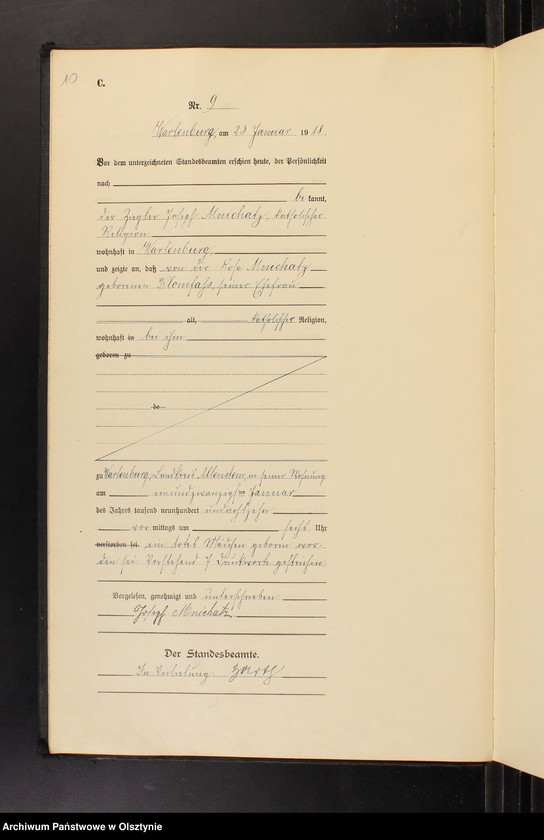 10
C.
Nr. 9
Wartenburg, am 23 Januar 1918.
Vor dem unterzeichneten Standesbeamten erschien heute, der Persönlichkeit
nach
be kannt,
der Joseph Mnichatz, katholischer
Religion
wohnhaft in Wartenburg,
und zeigte an, daß von der Rosa Mnichatz
geborenen seiner Ehefrau
alt, katholischer Religion,
wohnhaft in bei ihm
geboren zu
de
zu Wartenburg, Landkreis Allenstein, in seiner Wohnung
am einundzwanzigsten Januar
des Jahres tausend neunhundert undachtzehn
vor mittags um sechs Uhr
verstorben sei. ein totes Mädchen geboren wor-
den sei. Vorstehend 7 Druckworte gestrichen.
Vorgelesen, genehmigt und unterschrieben
Joseph Mnichatz
Der Standesbeamte.
In Vertretung:
Archiwum Państwowe w Olsztynie